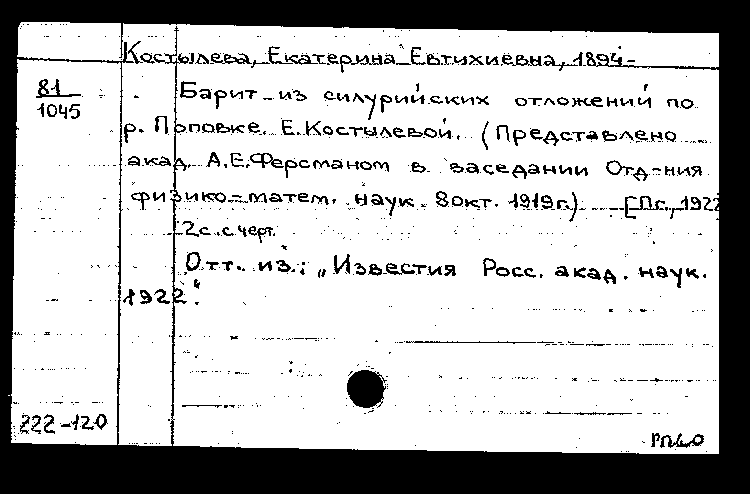 Костылева, Екатерина Евтихиевна, 1894-
81
1045
Барит из силурийских отложений по
р. Поповке. Е.Костылевой. (Представлено
акад. А.Е.Ферсманом в заседании Отд-ния
физико-матем. наук 8 окт. 1919г.) [Пг., 1922
2с. с черт.
Отт. из: „Известия Росс. акад. наук.
1922".
222-120